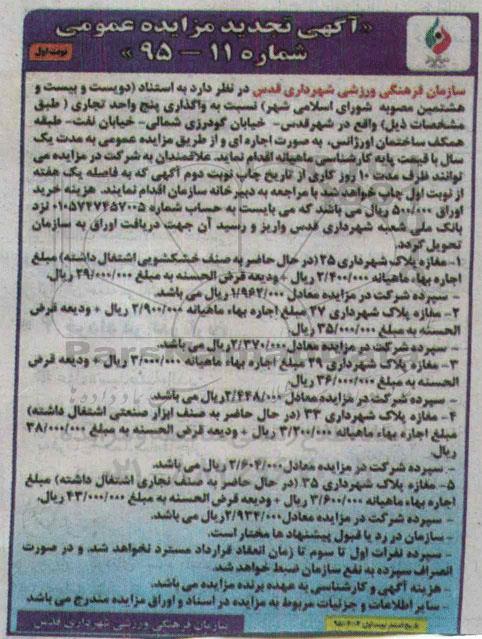 «آگهی تجدید مزایده عمومی
شماره ۱۱ – ۹۵»
نوبت اول
سازمان فرهنگی ورزشی شهرداری قدس در نظر دارد به استناد (دویست و بیست و
هشتمین مصوبه شورای اسلامی شهر) نسبت به واگذاری پنج واحد تجاری ( طبق
مشخصات ذیل) واقع در شهرقدس- خیابان گودرزی شمالی- خیابان نفت- طبقه
همکف ساختمان اورژانس، به صورت اجاره ای و از طریق مزایده عمومی به مدت یک
سال با قیمت پایه کارشناسی ماهیانه اقدام نماید. علاقمندان به شرکت در مزایده می
توانند ظرف مدت ۱۰ روز کاری از تاریخ چاپ نوبت دوم آگهی که به فاصله یک هفته
از نوبت اول چاپ خواهد شد با مراجعه به دبیرخانه سازمان اقدام نمایند. هزینه خرید
اوراق ۵۰۰/۰۰۰ ریال می باشد که می بایست به حساب شماره ۰۱۰۵۷۴۷۴۵۷۰۰۵ نزد
بانک ملی شعبه شهرداری قدس واریز و رسید آن جهت دریافت اوراق به سازمان
تحویل گردد.
۱- مغازه پلاک شهرداری ۲۵ (در حال حاضر به صنف خشکشویی اشتغال داشته) مبلغ
اجاره بهاء ماهیانه ۲/۴۰۰/۰۰۰ ریال + ودیعه قرض الحسنه به مبلغ ۲۹/۰۰۰/۰۰۰ ریال.
- سپرده شرکت در مزایده معادل ۱/۹۶۲/۰۰۰ ریال می باشد.
۲- مغازه پلاک شهرداری ۲۷ مبلغ اجاره بهاء ماهیانه ۲/۹۰۰/۰۰۰ ریال + ودیعه قرض
الحسنه به مبلغ ۳۵/۰۰۰/۰۰۰ ریال.
- سپرده شرکت در مزایده معادل ۲/۳۷۰/۰۰۰ ریال می باشد.
۳- مغازه پلاک شهرداری ۲۹ مبلغ اجاره بهاء ماهیانه ۳/۰۰۰/۰۰۰ ریال + ودیعه قرض
الحسنه به مبلغ ۳۶/۰۰۰/۰۰۰ ریال.
- سپرده شرکت در مزایده معادل ۲/۴۴۸/۰۰۰ ریال می باشد.
۴- مغازه پلاک شهرداری ۳۳ (در حال حاضر به صنف ابزار صنعتی اشتغال داشته)
مبلغ اجاره بهاء ماهیانه ۳/۲۰۰/۰۰۰ ریال + ودیعه قرض الحسنه به مبلغ ۳۸/۰۰۰/۰۰۰
ریال.
- سپرده شرکت در مزایده معادل ۲/۶۰۴/۰۰۰ ریال می باشد.
۵- مغازه پلاک شهرداری ۳۵ (در حال حاضر به صنف نجاری اشتغال داشته) مبلغ
اجاره بهاء ماهیانه ۳/۶۰۰/۰۰۰ ریال + ودیعه قرض الحسنه به مبلغ ۴۳/۰۰۰/۰۰۰ ریال.
- سپرده شرکت در مزایده معادل ۲/۹۳۴/۰۰۰ ریال می باشد.
- سازمان در رد یا قبول پیشنهاد ها مختار است.
- سپرده نفرات اول تا سوم تا زمان انعقاد قرارداد مسترد نخواهد شد. و در صورت
انصراف سپرده به نفع سازمان ضبط خواهد شد.
- هزینه آگهی و کارشناسی به عهده برنده مزایده می باشد.
- سایر اطلاعات و جزئیات مربوط به مزایده در اسناد و اوراق مزایده مندرج می باشد
سازمان فرهنگی ورزشی شهرداری قدس